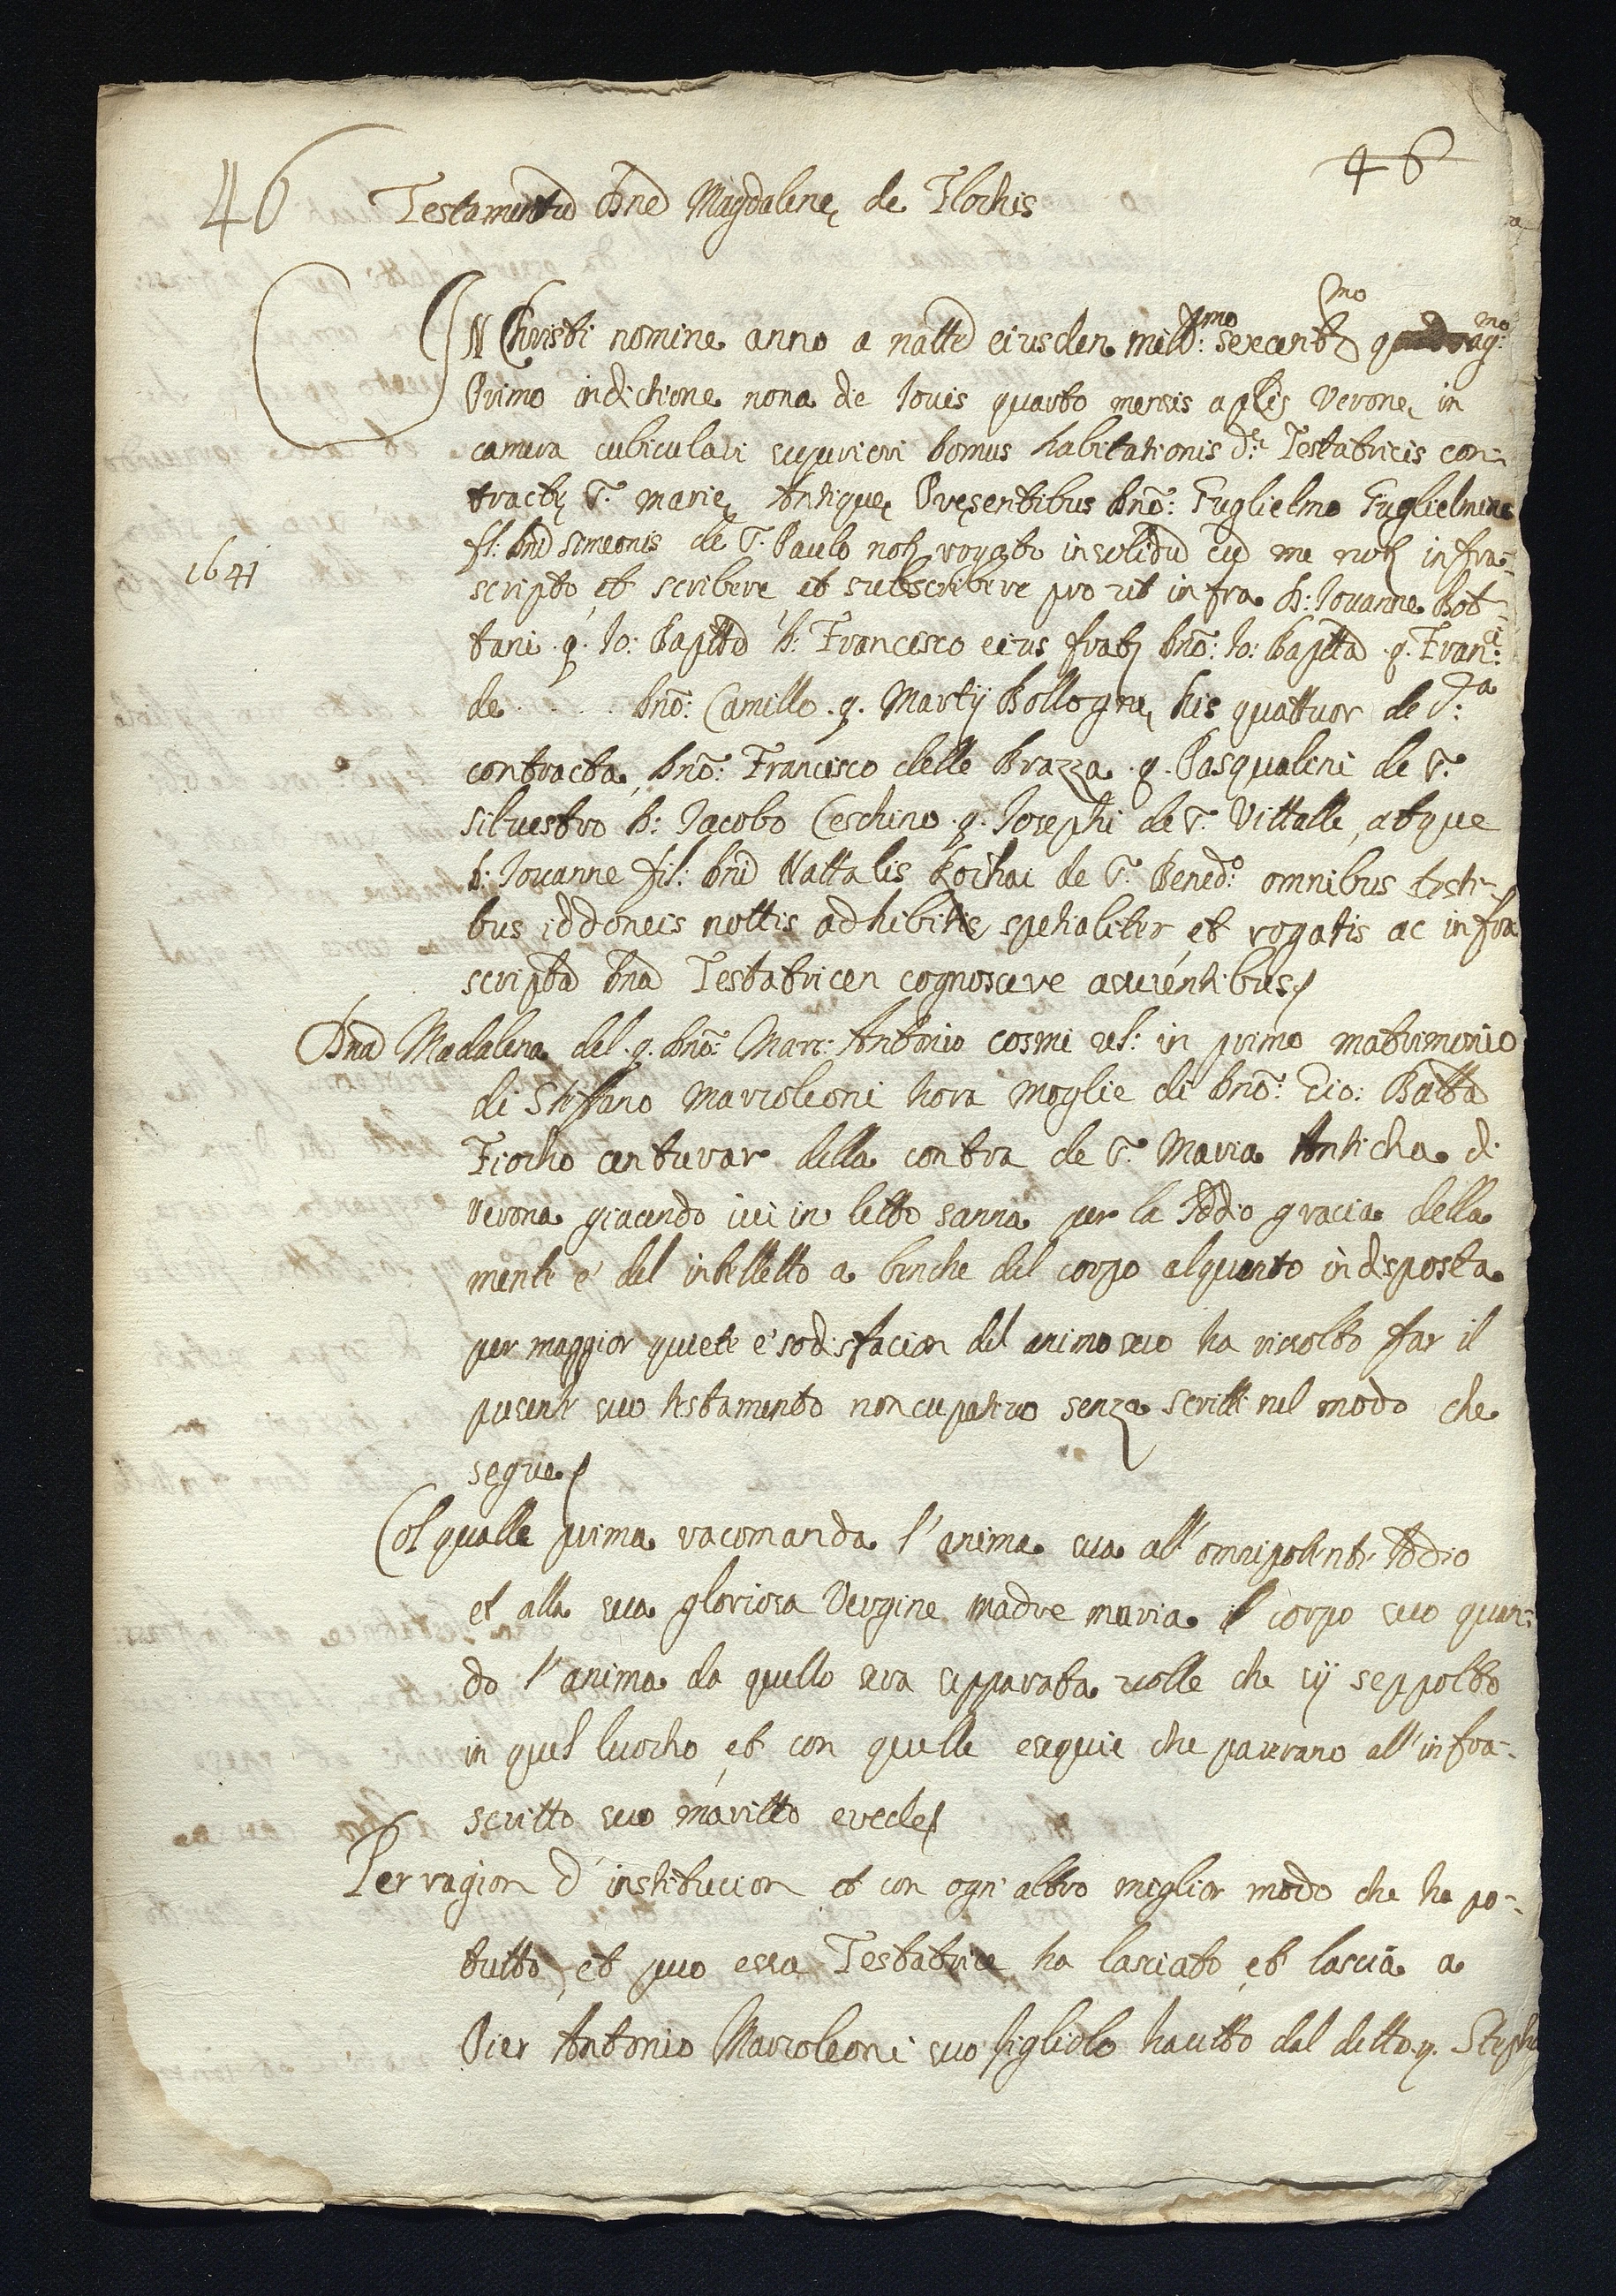 46
46
Testamentũ Dnę Magdalenę de Flochis
IN Christi nomine anno a nattẽ eiusdem mill:mo sexcentmo quadrag:mo
Primo indictione nona die Iouis quarto mensis aplis Veronę in
camera cubiculari superiori domus habitationis d:ę Testatricis con-
tractę S. Marię Antiquę Pręsentibus dno: Guglielmo Guglielmino
1641
fil: dni Simeonis de S. Paulo not rogato insolidũ cũ me not infra-
scripto et scribere et subscribere pro ut infra d: Iouanne Bot-
tani q. Io: Baptta d: Francisco eius frat dno: Io: Baptta q. Fran:ci
de . . . . dno: Camillo q. Martij Bollognę his quattuor de d:ta
contracta, dno: Francisco delle Brazza q. Pasqualini de S.
Siluestro d: Iacobo Ceschino q. Iosephi de S. Vittalle, atque
d: Iouanne fil: dni Nattalis Rochai de S. Bened:o omnibus testi-
bus iddoneis nottis adhibitis spetialiter et rogatis ac infra
scriptã dnã Testatricen cognoscere asserentibus
Dna Madalena del q. dno: Marc: Antonio Cosmi rel: in primo matrimonio
di Steffano Marcoleoni hora moglie di dno: Gio: Batta
Fiocho centurar della contra de S. Maria Anticha di
Verona giacendo ivi in letto sanna per la Iddio gracia della
mente e del intelletto a benche del corpo alquanto indisposta
per maggior quiete e sodisfacion del animo suo ha risolto far il
presente suo testamento noncupativo senza scritti nel modo che
segue
Col qualle prima racomanda l'anima sua all'omnipotente Iddio
et alla sua gloriosa Vergine madre maria il corpo suo quan-
do l'anima da quello sera sepparata volle che sij seppolto
in quel luocho, et con quelle esequie che parerano all'infra-
scritto suo maritto erede
Per ragion d'institucion et con ogni altro miglior modo che ha po-
tutto, et puo essa Testatrice ha lasciato et lascia a
Pier Antonio Marcoleoni suo figliolo hautto dal detto q. Steph